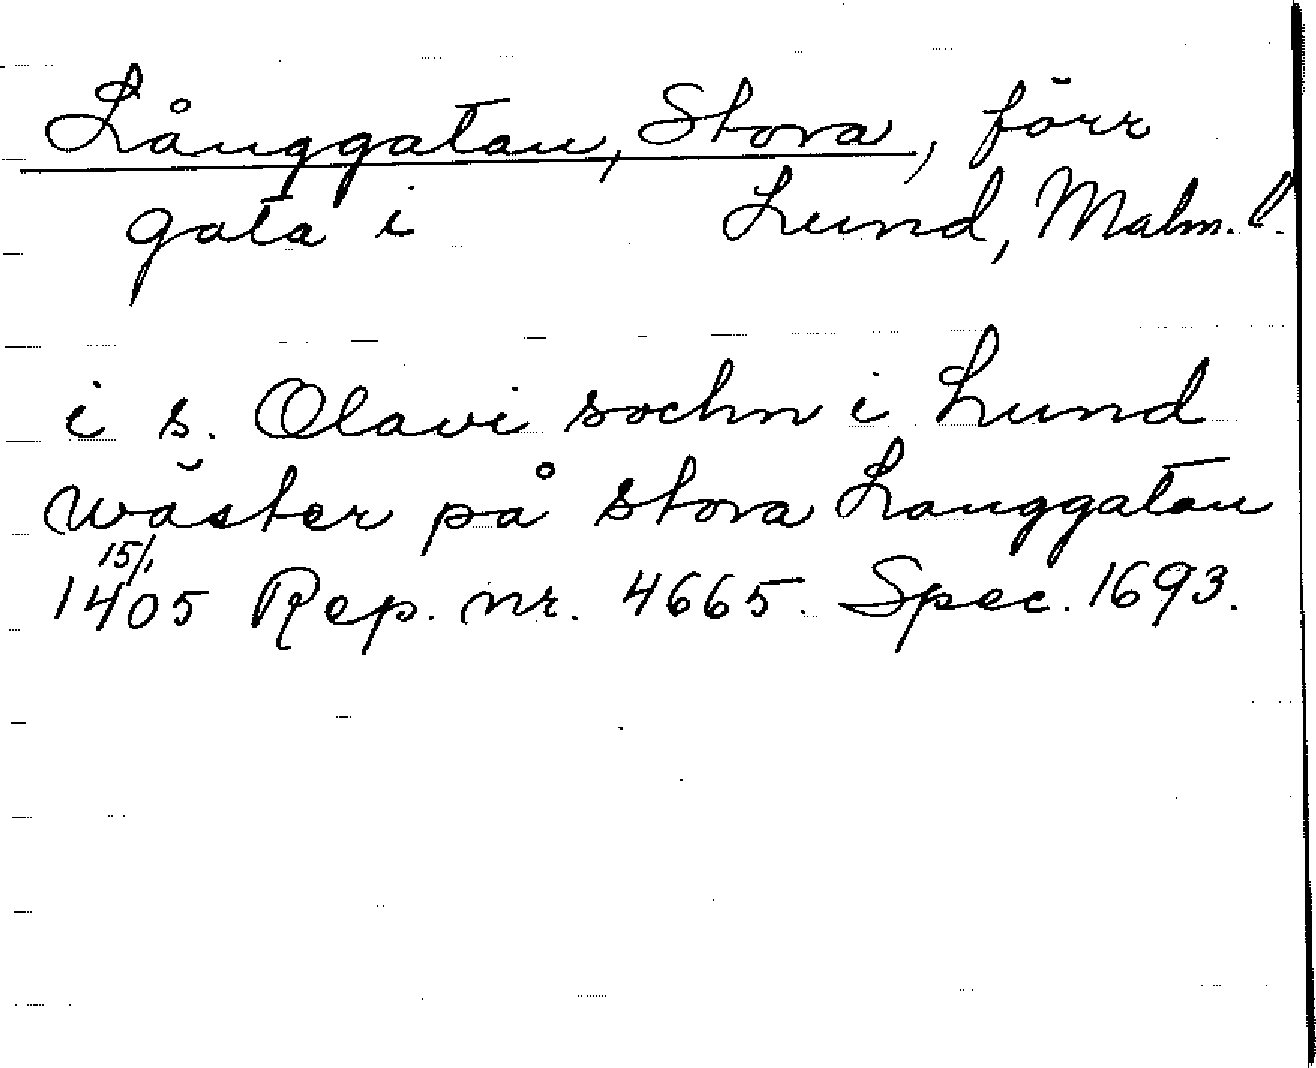 Långgatan, Stora, förr
gata i Lund, Malm. l.
i s. Olavi sochn i Lund
wäster på stora Langgatan
15/1
1405 Rep. nr. 4665. Spec. 1693.